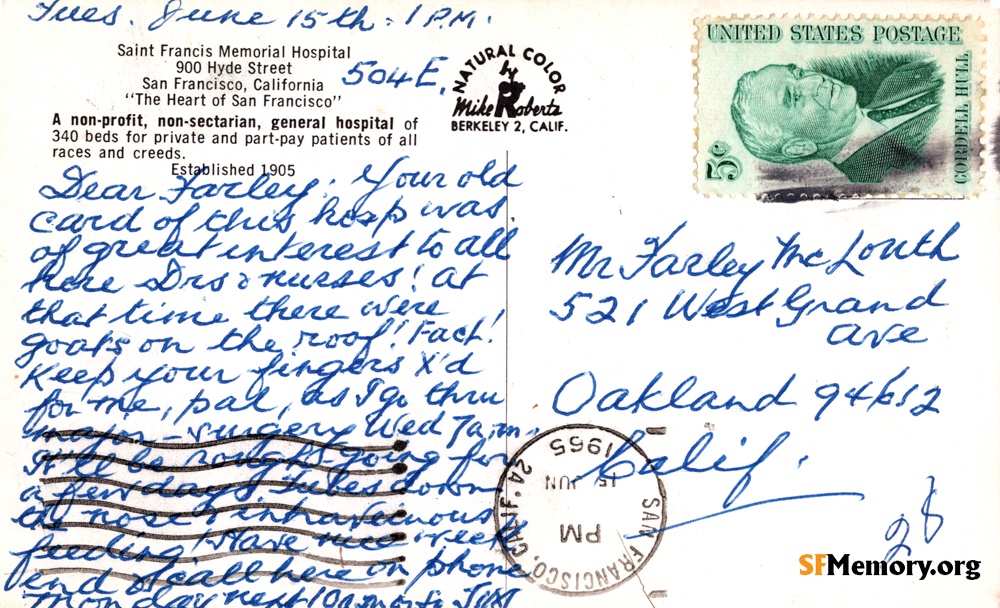 Tues. June 15th. 1 P.M.
Saint Francis Memorial Hospital
900 Hyde Street
San Francisco, California
"The Heart of San Francisco"
504 E.
A non-profit, non-sectarian, general hospital of
340 beds for private and part-pay patients of all
races and creeds.
Established 1905
NATURAL COLOR
by
Mike Roberts
BERKELEY 2, CALIF.
UNITED STATES POSTAGE
CORDELL HULL
5c
Dear Farley: Your old
card of this hosp was
of great interest to all
here Drs & nurses! At
that time there were
goats on the roof! Fact!
Keep your fingers X'd
for me, pal, as I go thru
major surgery Wed 7 a.m.
It'll be rough going for
a few days. Tubes down
the nose & intravenous
feeding! Have nice week
end & call here on phone
Monday next 10 a.m.
Mr Farley McLouth
521 West Grand
Ave
Oakland 94612
Calif.
28
SAN FRANCISCO, CALIF. 2A
PM
15 JUN
1965
SFMemory.org